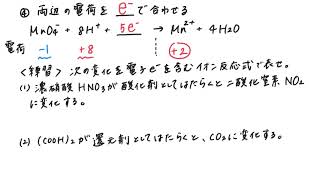 ④ 両辺の電荷を e⁻ で合わせる
MnO₄⁻ + 8H⁺ + 5e⁻ → Mn²⁺ + 4H₂O
電荷 -1 +8 +2
<練習> 次の変化を電子e⁻を含むイオン反応式で表せ。
(1) 濃硝酸 HNO₃が酸化剤としてはたらくと二酸化窒素 NO₂
に変化する。
(2) (COOH)₂が還元剤としてはたらくと、CO₂に変化する。